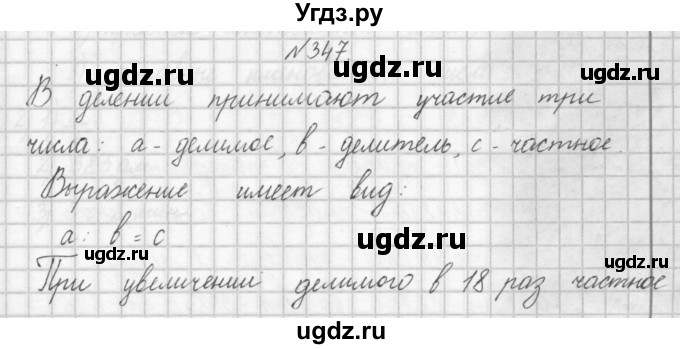 Угдз.ру
№347
ugdz.ru ugdz.ru
В делении принимают участие три
числа: а - делимое, в - делитель, с - частное.
ugdz.ru
Выражение имеет вид:
а : в = с
ugdz.ru ugdz.ru
При увеличении делимого в 18 раз частное
ugdz.ru
Угдз.ру